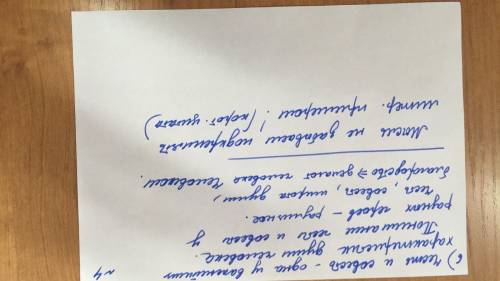 №4
6) Честь и совесть - одна из важнейших
характеристик души человека.
Понимание чести и совести у
разных героев - различное.
Честь, совесть, широта души,
благородство ⇒ делают человека Человеком.
Мысль не забываем подкреплять
литер. примером! (корот. цитата)